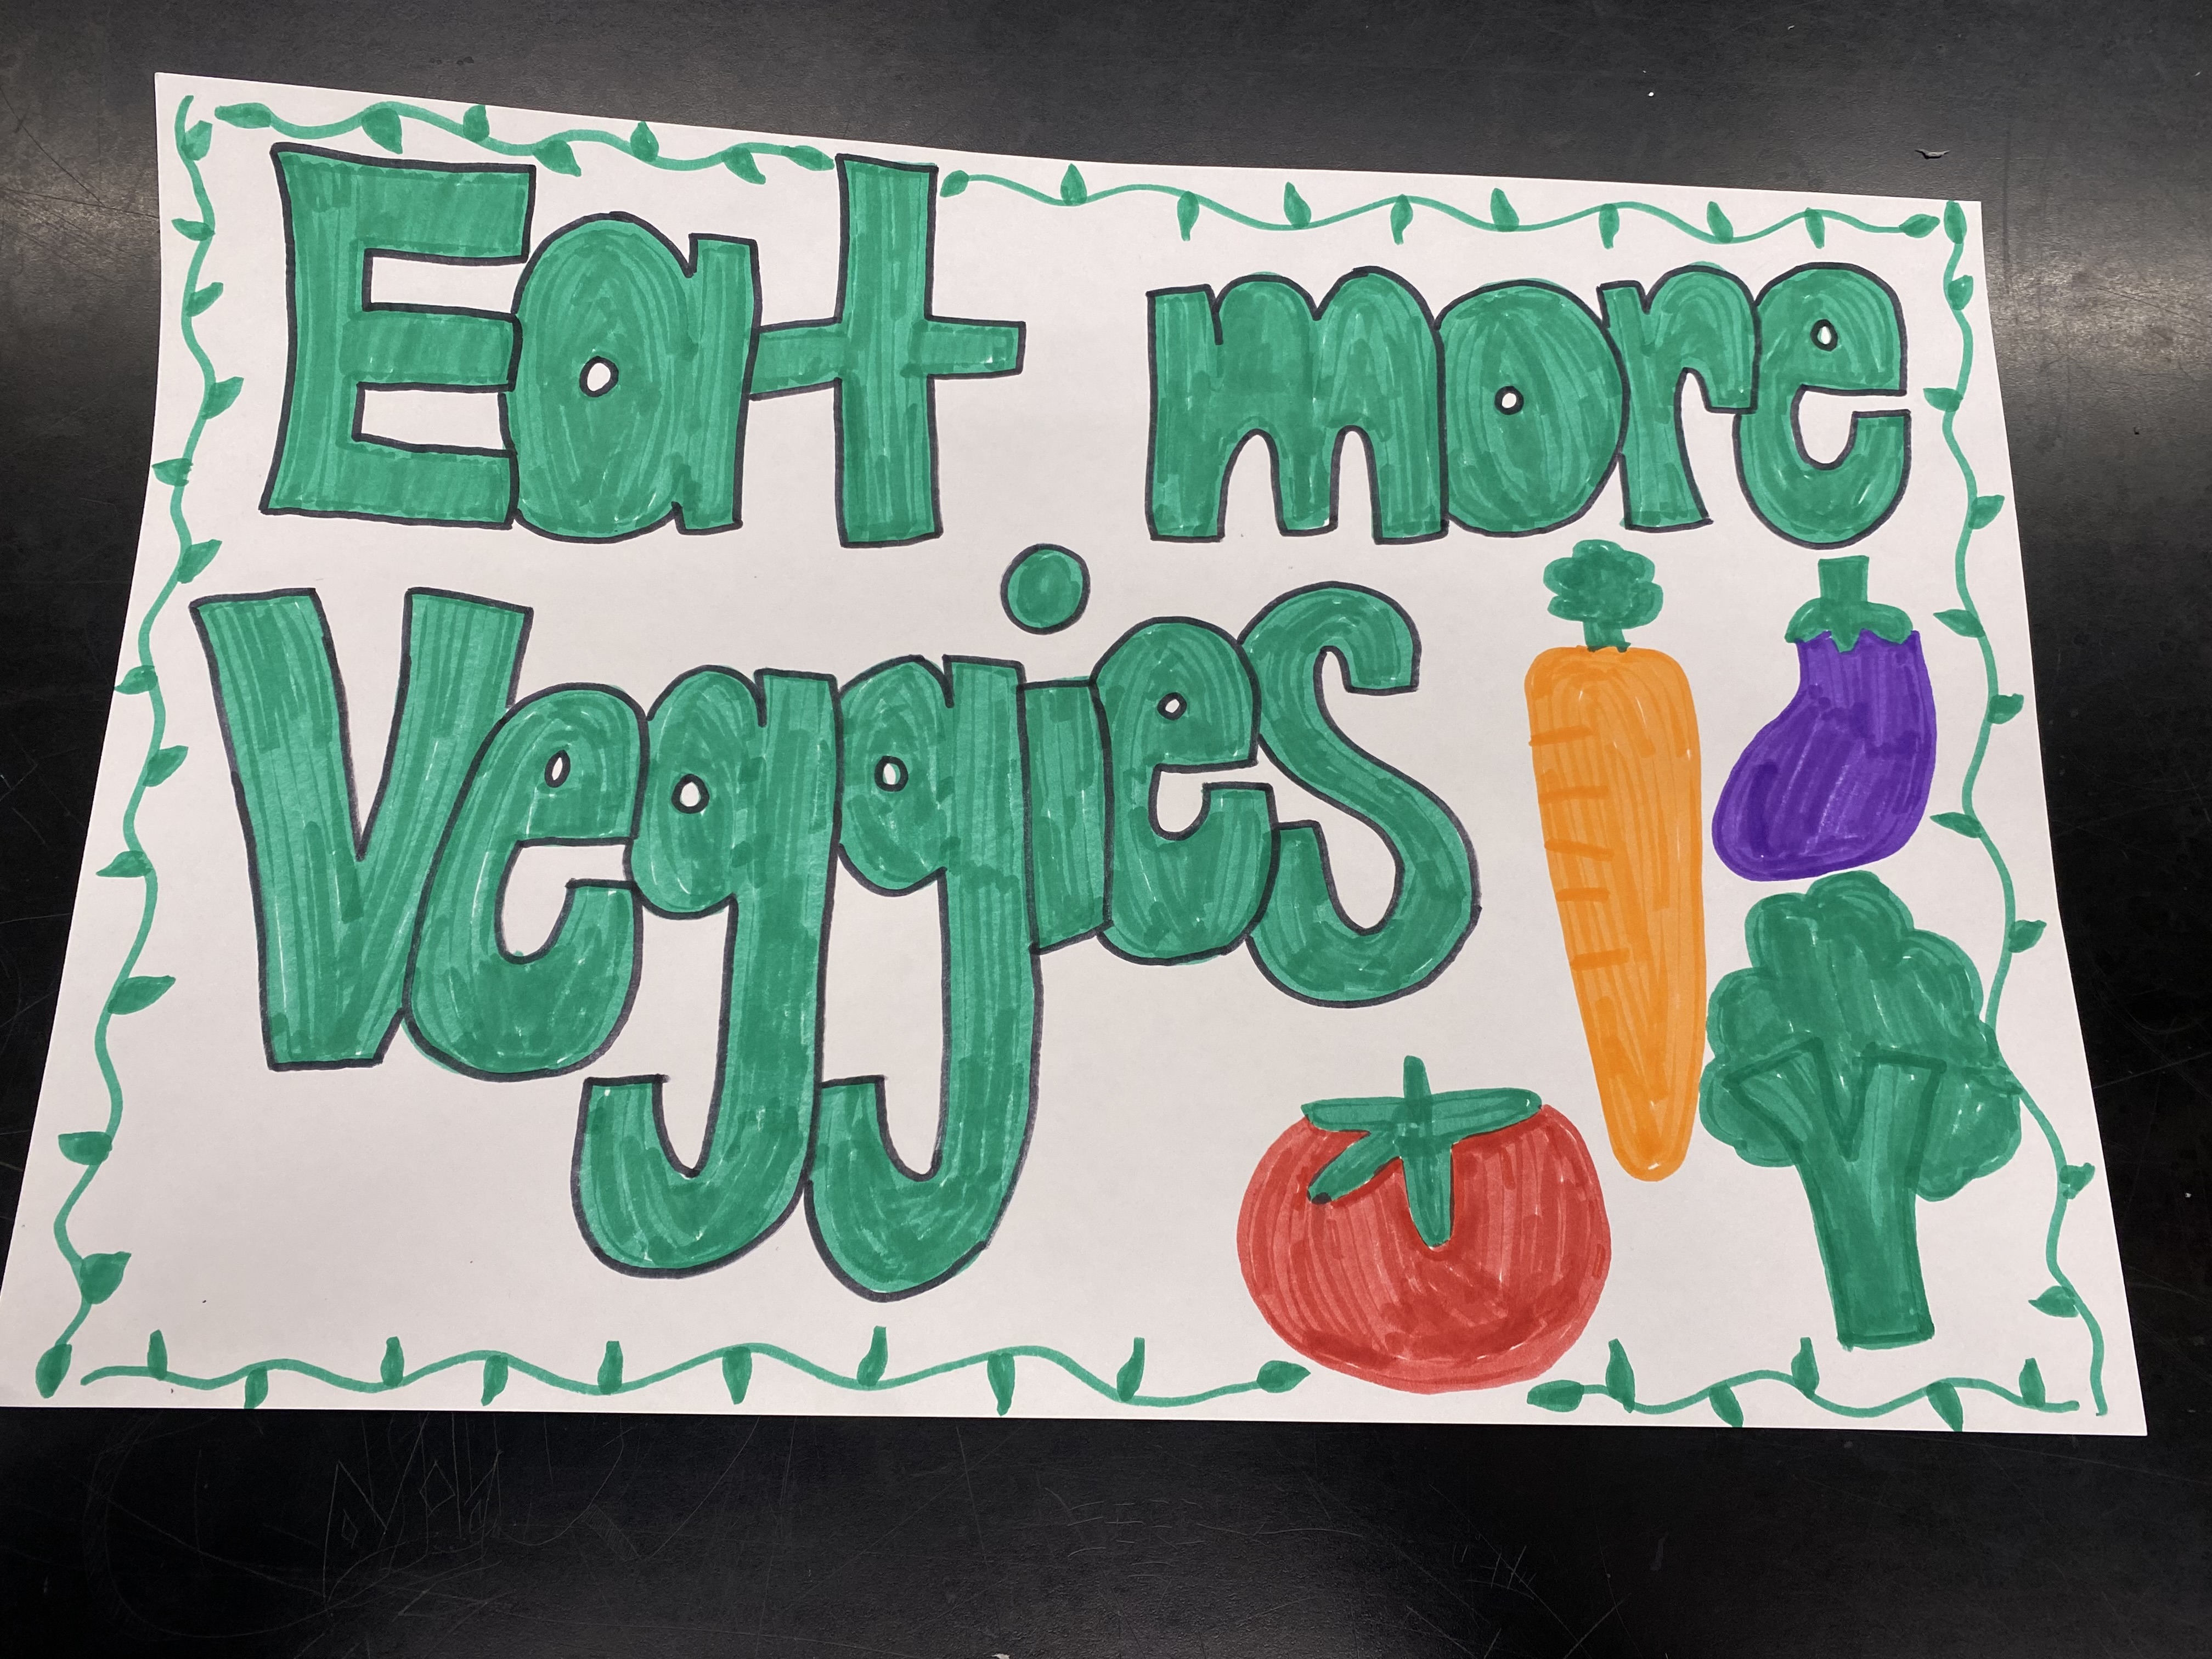 Eat more
Veggies